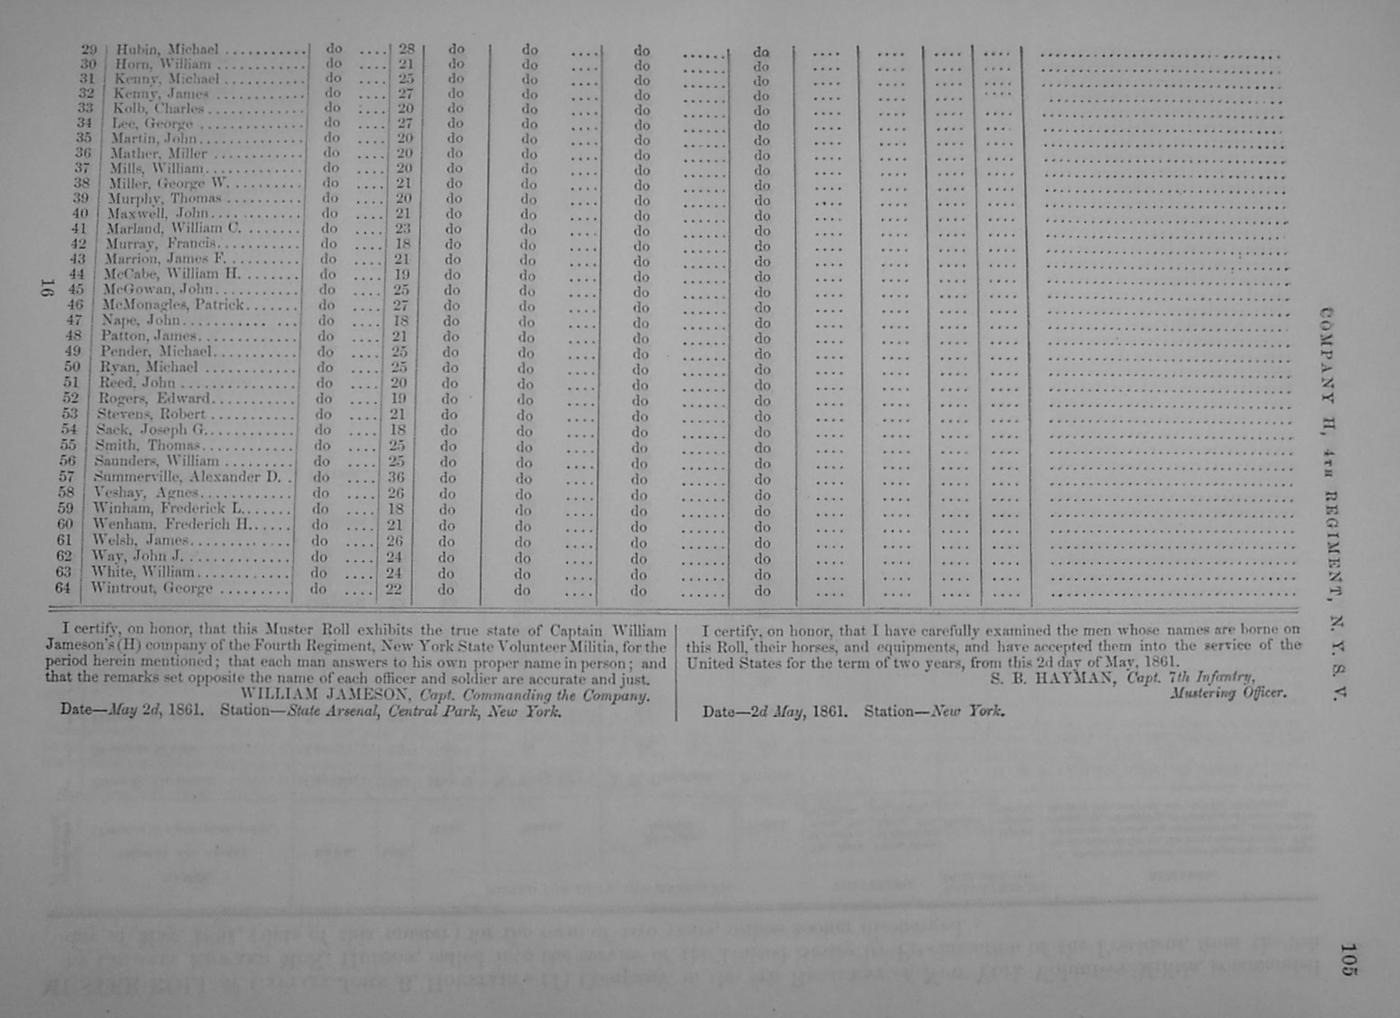 29 Hubin, Michael ........... do .... 28 do do .... do ...... do .... .... .... ....
30 Horn, William ............ do .... 21 do do .... do ...... do .... .... .... ....
31 Kenny, Michael ........... do .... 25 do do .... do ...... do .... .... .... ....
32 Kenny, James ............ do .... 27 do do .... do ...... do .... .... .... ....
33 Kolb, Charles ............. do .... 20 do do .... do ...... do .... .... .... ....
34 Lee, George .............. do .... 27 do do .... do ...... do .... .... .... ....
35 Martin, John .............. do .... 20 do do .... do ...... do .... .... .... ....
36 Mather, Miller ............ do .... 20 do do .... do ...... do .... .... .... ....
37 Mills, William ............. do .... 20 do do .... do ...... do .... .... .... ....
38 Miller, George W. ......... do .... 21 do do .... do ...... do .... .... .... ....
39 Murphy, Thomas .......... do .... 20 do do .... do ...... do .... .... .... ....
40 Maxwell, John ............ do .... 21 do do .... do ...... do .... .... .... ....
41 Marland, William C. ....... do .... 23 do do .... do ...... do .... .... .... ....
42 Murray, Francis ........... do .... 18 do do .... do ...... do .... .... .... ....
43 Marrion, James F. ......... do .... 21 do do .... do ...... do .... .... .... ....
44 McCabe, William H. ....... do .... 19 do do .... do ...... do .... .... .... ....
45 McGowan, John ........... do .... 25 do do .... do ...... do .... .... .... ....
46 McMonagles, Patrick ...... do .... 27 do do .... do ...... do .... .... .... ....
47 Nape, John .............. do .... 18 do do .... do ...... do .... .... .... ....
48 Patton, James ............ do .... 21 do do .... do ...... do .... .... .... ....
49 Pender, Michael .......... do .... 25 do do .... do ...... do .... .... .... ....
50 Ryan, Michael ............ do .... 25 do do .... do ...... do .... .... .... ....
51 Reed, John .............. do .... 20 do do .... do ...... do .... .... .... ....
52 Rogers, Edward ........... do .... 19 do do .... do ...... do .... .... .... ....
53 Stevens, Robert ........... do .... 21 do do .... do ...... do .... .... .... ....
54 Sack, Joseph G. ........... do .... 18 do do .... do ...... do .... .... .... ....
55 Smith, Thomas ............ do .... 25 do do .... do ...... do .... .... .... ....
56 Saunders, William ......... do .... 25 do do .... do ...... do .... .... .... ....
57 Summerville, Alexander D. . do .... 36 do do .... do ...... do .... .... .... ....
58 Veshay, Agnes ............ do .... 26 do do .... do ...... do .... .... .... ....
59 Winham, Frederick L. ...... do .... 18 do do .... do ...... do .... .... .... ....
60 Wenham, Frederich H. ..... do .... 21 do do .... do ...... do .... .... .... ....
61 Welsh, James ............. do .... 26 do do .... do ...... do .... .... .... ....
62 Way, John J. ............. do .... 24 do do .... do ...... do .... .... .... ....
63 White, William ............ do .... 24 do do .... do ...... do .... .... .... ....
64 Wintrout, George ......... do .... 22 do do .... do ...... do .... .... .... ....
16
I certify, on honor, that this Muster Roll exhibits the true state of Captain William
Jameson's (H) company of the Fourth Regiment, New York State Volunteer Militia, for the
period herein mentioned; that each man answers to his own proper name in person; and
that the remarks set opposite the name of each officer and soldier are accurate and just.
WILLIAM JAMESON, Capt. Commanding the Company.
Date—May 2d, 1861. Station—State Arsenal, Central Park, New York.
I certify, on honor, that I have carefully examined the men whose names are borne on
this Roll, their horses, and equipments, and have accepted them into the service of the
United States for the term of two years, from this 2d day of May, 1861.
S. B. HAYMAN, Capt. 7th Infantry,
Mustering Officer.
Date—2d May, 1861. Station—New York.
COMPANY H, 4TH REGIMENT, N. Y. S. V.
105